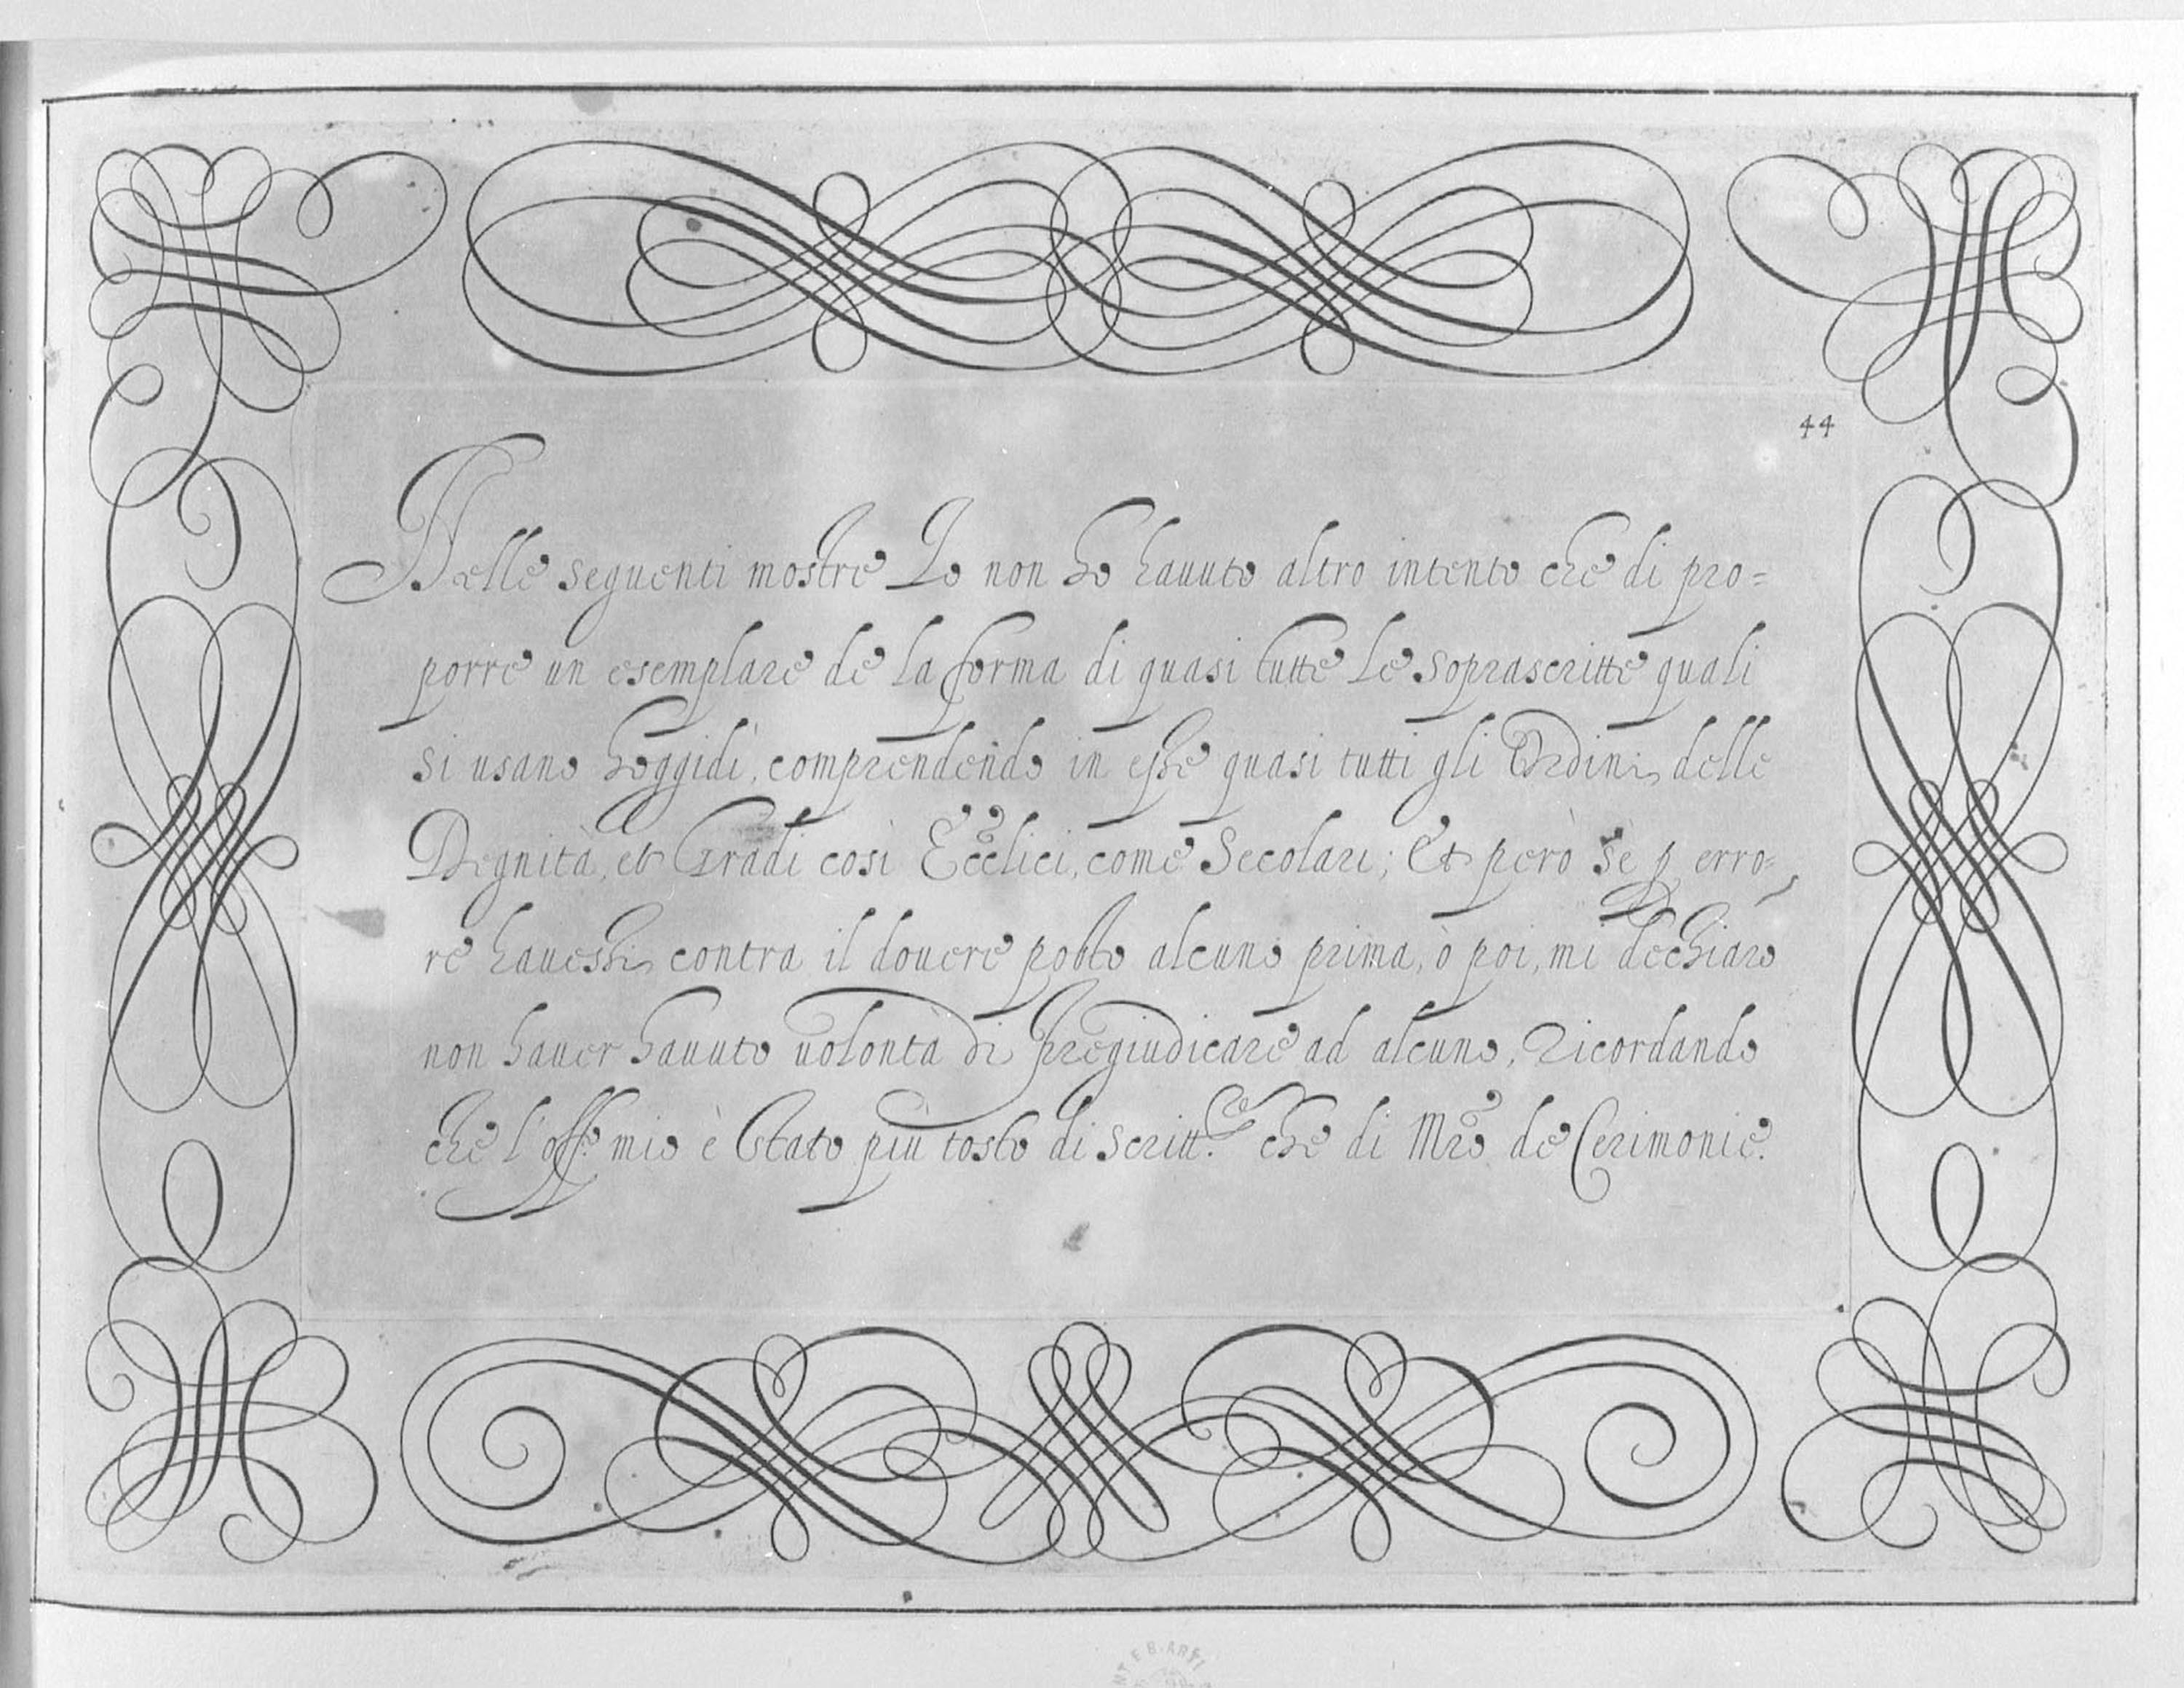 44
Nelle seguenti mostre Io non ho hauuto altro intento che di pro=
porre un esemplare de la forma di quasi tutte le soprascritte quali
si usano hoggidì, comprendendo in esse quasi tutti gli Ordini, delle
Dignità, et Gradi così Ecclici, come Secolari; Et però se p erro=
re hauessi contra il douere posto alcuno prima, ò poi, mi dechiaro
non hauer hauuto uolontà di pregiudicare ad alcuno, Ricordando
che l'offe mio è stato più tosto di scritt.re che di Mro de Cerimonie.